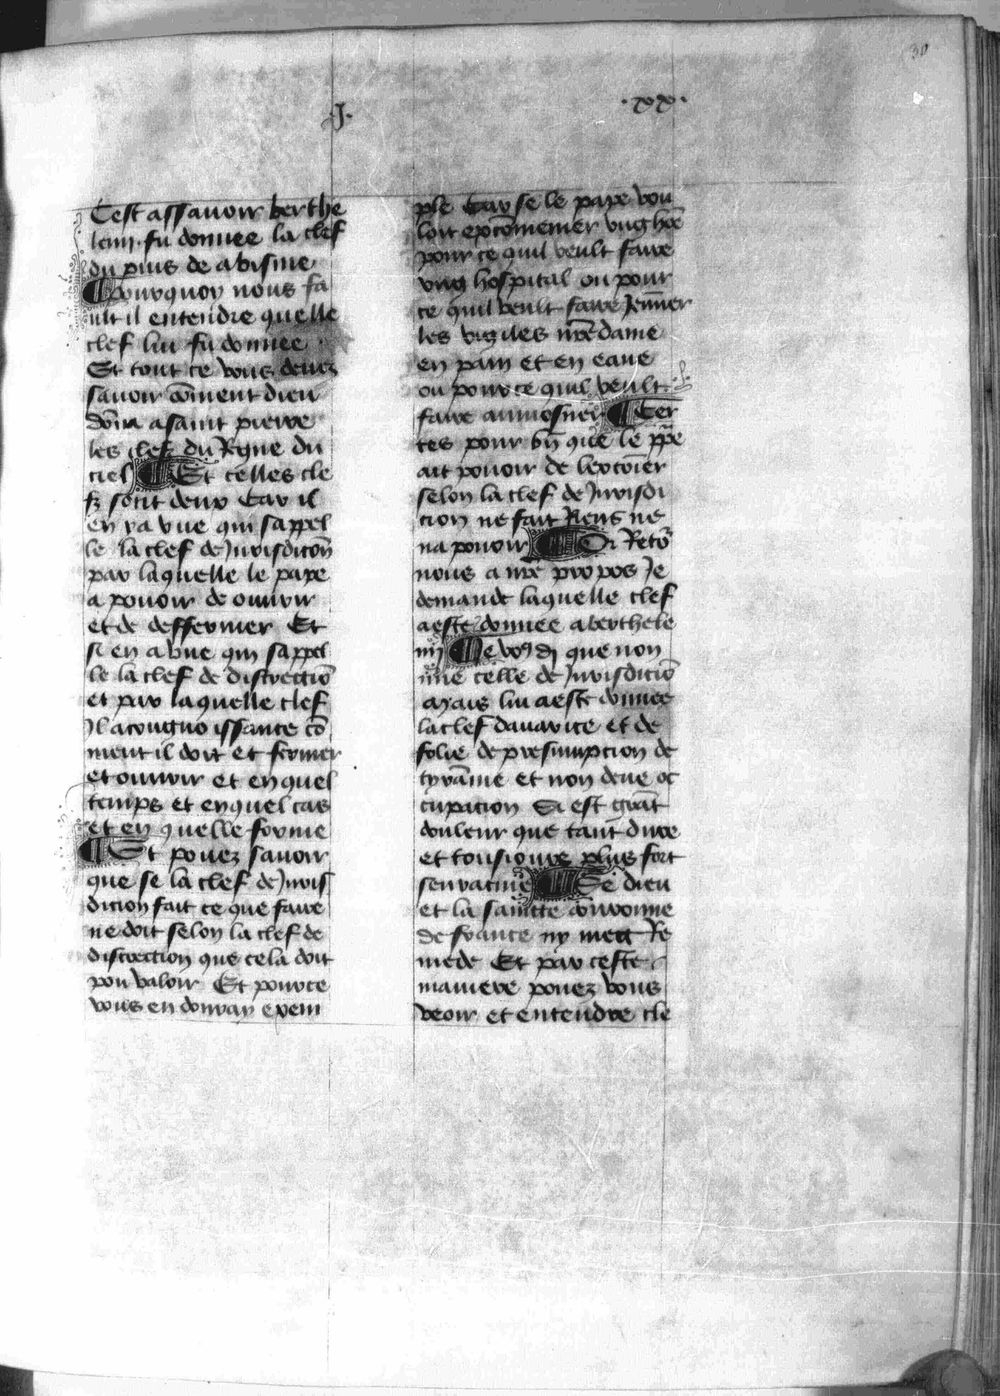 30
.J. .xx.
Cest assauoir berthe
lemi. fu donnee la clef
du puis de abisme
¶ pourquoy nous fa
ult il entendre quelle
clef lui fu donnee
Et tout ce vous deuez
sauoir cōment dieu
dōna a saint pierre
les clef du Regne du
ciel ¶ Et celles cle
fz sont deux Car il
en ya vne qui sappel
le la clef de Jurisdicōn
par laquelle le pape
a pouoir de ouurir
et de deffermer Et
si en a vne qui sappel
le la clef de discrectiō
et par laquelle clef
Jl a congnoissance cō
ment il doit et fermer
et ouurir et en quel
temps et en quel cas
et en quelle forme
¶ Et pouez sauoir
que se la clef de Juris
dicion fait ce que faire
ne doit selon la clef de
discrection que cela doit
pou valoir Et pource
vous en donray exem
ple Car se le pape vou
loit excōmenier vng hōe
pour ce quil veult faire
vng hospital ou pour
ce quil veult faire Jeuner
les vigiles nr̄e dame
en pain et en eaue
ou pour ce quil veult
faire aumosner ¶ Cer
tes pour bn̄ que le pp̄e
ait pouoir de lexcōier
selon la clef de Jurisdi
cion ne fait Riens ne
na pouoir ¶ Or Retō
nous a nr̄e propos Je
demande laquelle clef
a este donnee a berthele
mj ¶ Je vo9 dj que non
mie celle de Jurisdiciō
Mais lui a este donnee
la clef dauarice et de
folie de presumpcion de
tyrānie et non deue oc
cupacion Si est grāt
douleur que tant dure
et tousiours plus fort
senracine ¶ Se dieu
et la saincte couronne
de france ny mett Re
mede Et par ceste
maniere pouez vous
veoir et entendre cle